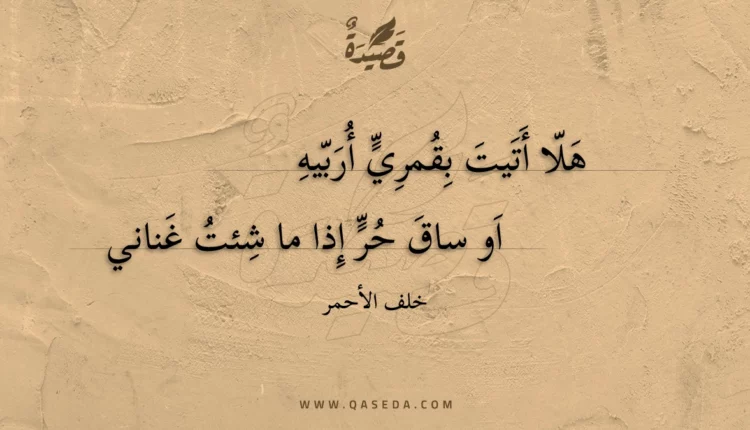 قَصِيْدَةٌ
هَلّا أَتَيتَ بِقُمرِيٍّ أُرَبّيهِ
اَو ساقَ حُرٍّ إِذا ما شِئتُ غَناني
خلف الأحمر
WWW.QASEDA.COM